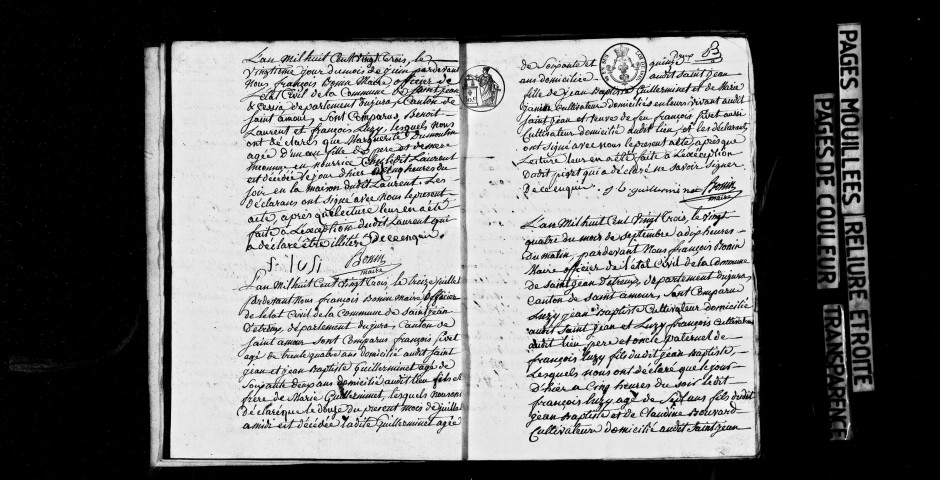 L'an mil huit Cent Vingt Trois, le
Vingtieme jour du mois de juin pardevant
Nous françois Bonin Maire officier de
l'état Civil de la Commune de Saint jean
d'etreux département du jura, Canton de
Saint amour, Sont Comparus, Benoit
Laurent et françois Luzy, lesquels nous
ont déclarés que Marguerite Dumoulin
agée d'un an fille de pere et de mere
inconnus, en nourrice Chez ledit Laurent
est décédée le jour d'hier a Cinq heures du
soir en la maison dudit Laurent. Les
Déclarans ont Signé avec nous le present
acte, après que lecture leur en a été
faite à l'exception dudit Laurent qui
a déclaré être illitéré De ce enquis.
f. lusi Bonin
maire
L'an mil huit Cent Vingt Trois, le treize juillet
Pardevant Nous françois Bonin maire officier
de l'etat Civil de la Commune de Saint jean
D'etreux, département du jura, Canton de
Saint amour Sont Comparus françois Pivet
agé de trente quatre ans domicilié audit Saint
jean et jean Baptiste Guillerminet agé de
Soixante Deux ans domicilié audit lieu fils et
frere de Marie Guillerminet, lesquels nous ont
déclaré que le douze du present mois de juillet
a midi est décédée ladite Guillerminet agée
Deux 83
de Soixante et quinze
ans domiciliée audit Saint jean
fille de jean Baptiste Guillerminet et de Marie
Cultivateur domiciliés en leur vivant audit
Saint jean et veuve de feu françois Pivet aussi
Cultivateur domicilié audit lieu, et les déclarans
ont signé avec nous le present acte, après que
Lecture leur en a été faite à l'exception
Dudit pivet qui a déclaré ne savoir signer
De ce enquis. guillerminet Bonin
maire
L'an Mil huit Cent Vingt Trois, le vingt
quatre du mois de Septembre a dix heures
Du matin, pardevant Nous françois Bonin
Maire officier de l'état Civil de la Commune
de Saint jean D'etreux, département du jura,
Canton de Saint amour, Sont Comparus
Luzy jean Baptiste Cultivateur domicilié
audit Saint jean et Luzy françois Cultivateur
audit lieu pere et oncle paternel de
françois Luzy fils dudit jean Baptiste,
Lesquels nous ont déclaré que le jour
D'hier a Cinq heures du Soir ledit
françois Luzy agé de Sept ans fils dudit
jean Baptiste et de Claudine Bouvard
Cultivateur domicilié audit Saint jean
PAGES MOUILLEES RELIURE ETROITE
PAGES DE COULEUR TRANSPARENCE